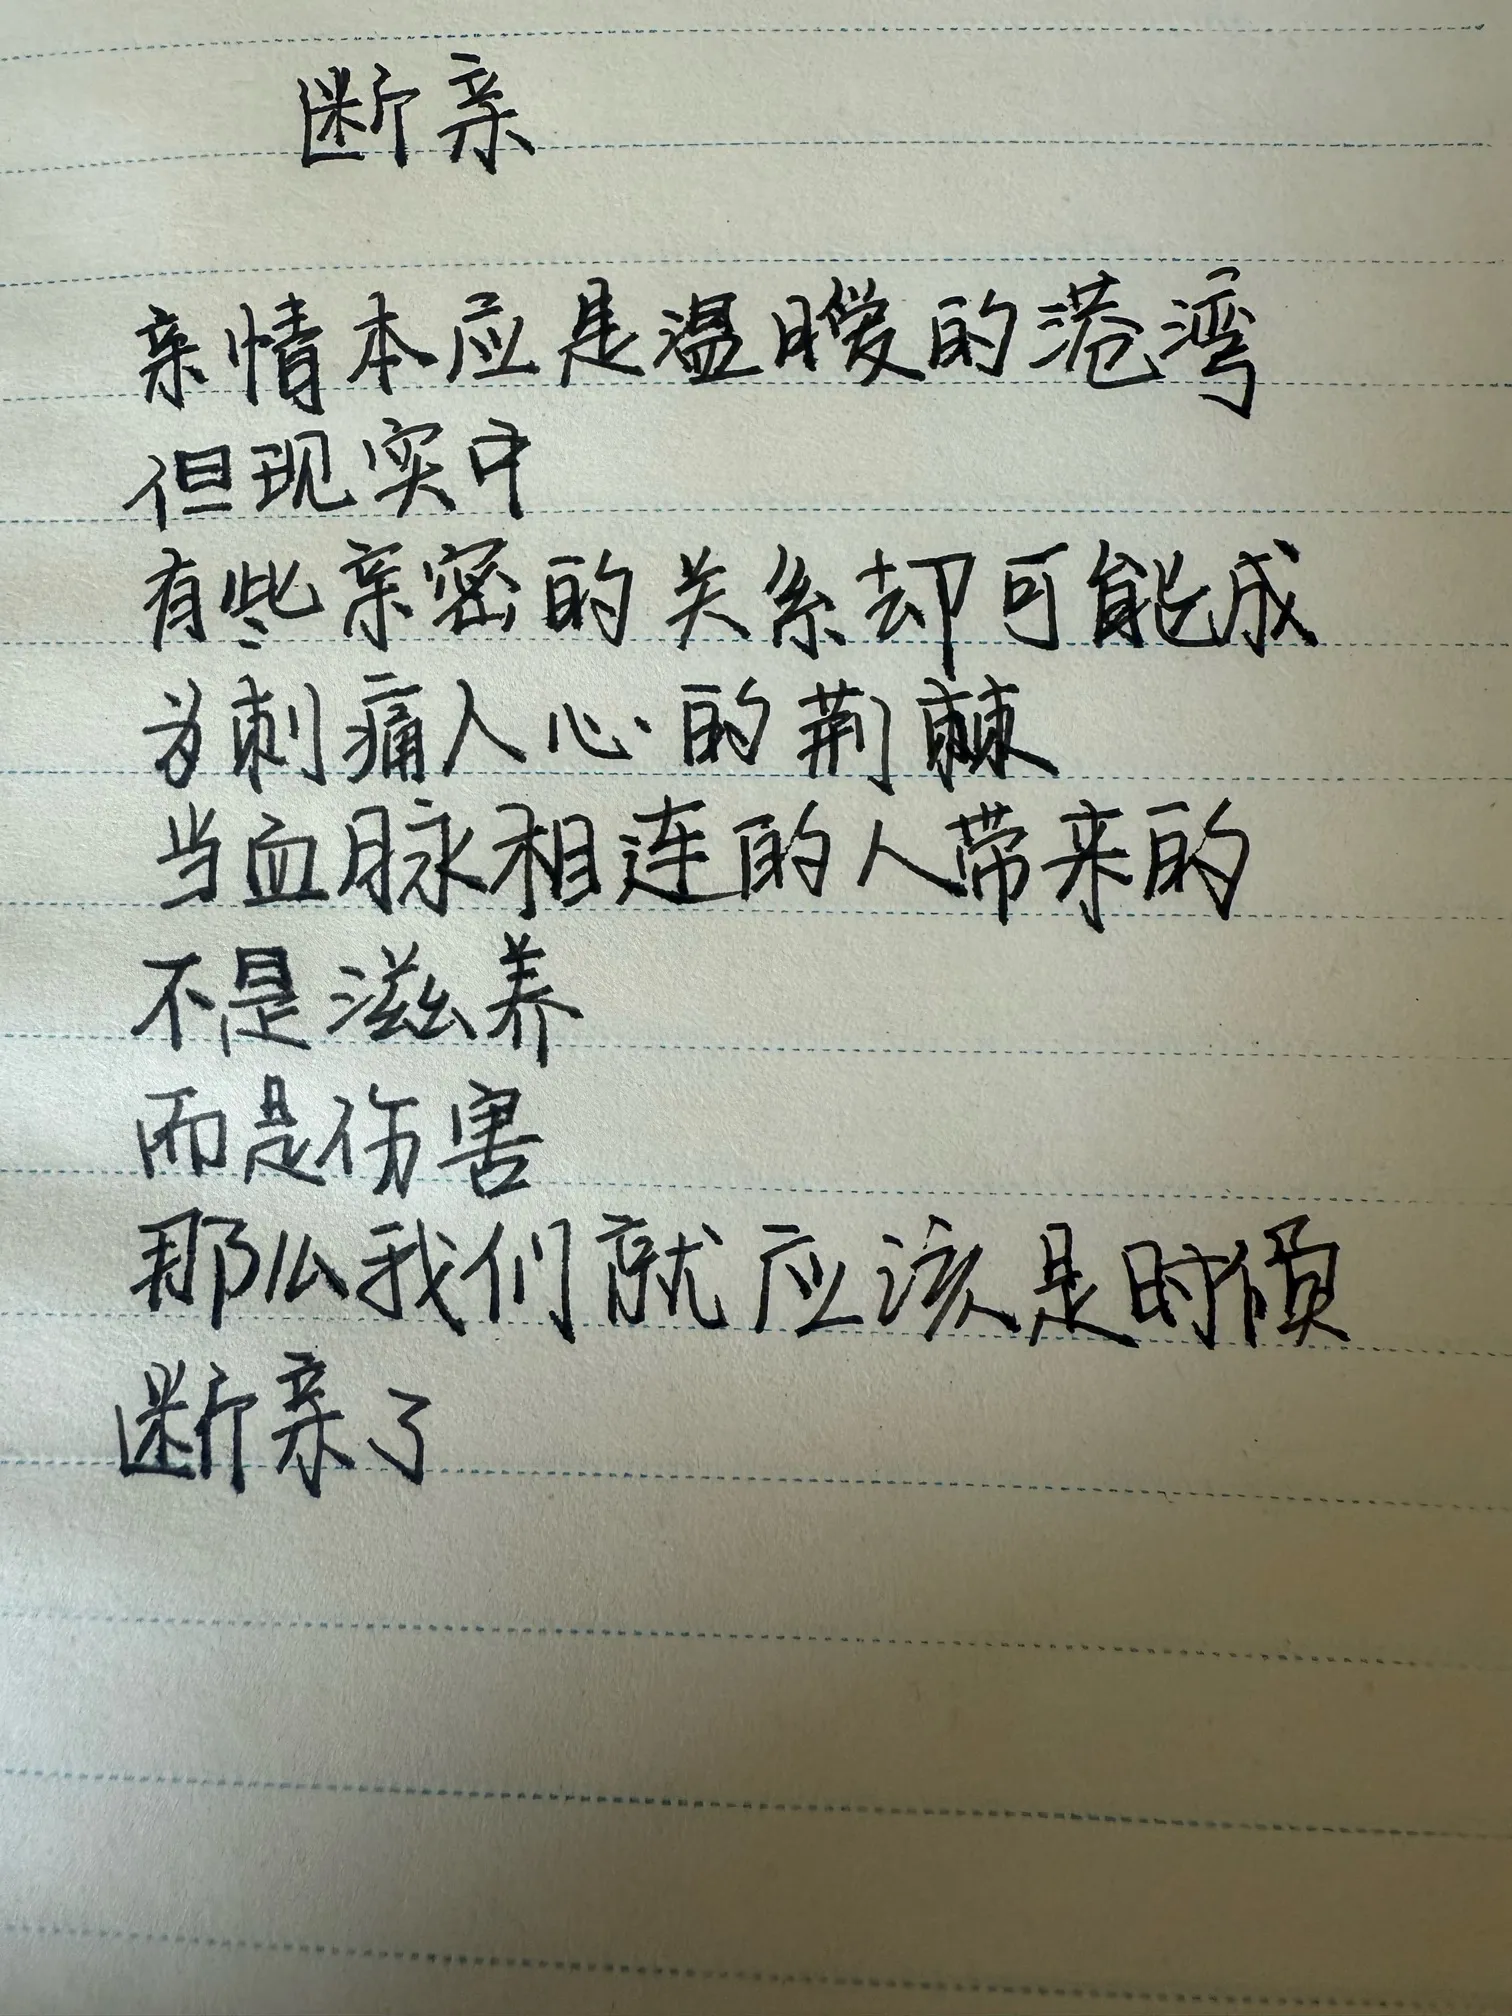 断亲
亲情本应是温暖的港湾
但现实中
有些亲密的关系却可能成
为刺痛人心的荆棘
当血脉相连的人带来的
不是滋养
而是伤害
那么我们就应该是时候
断亲了